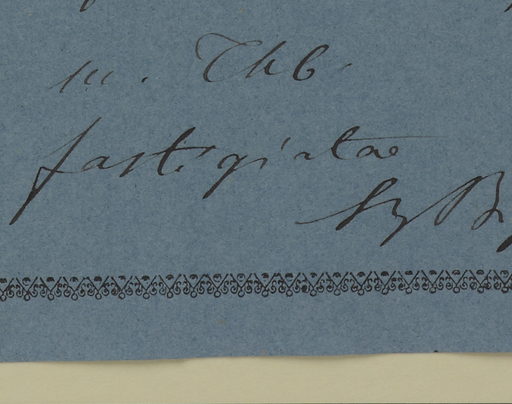 m. Thb.
fastigiatae